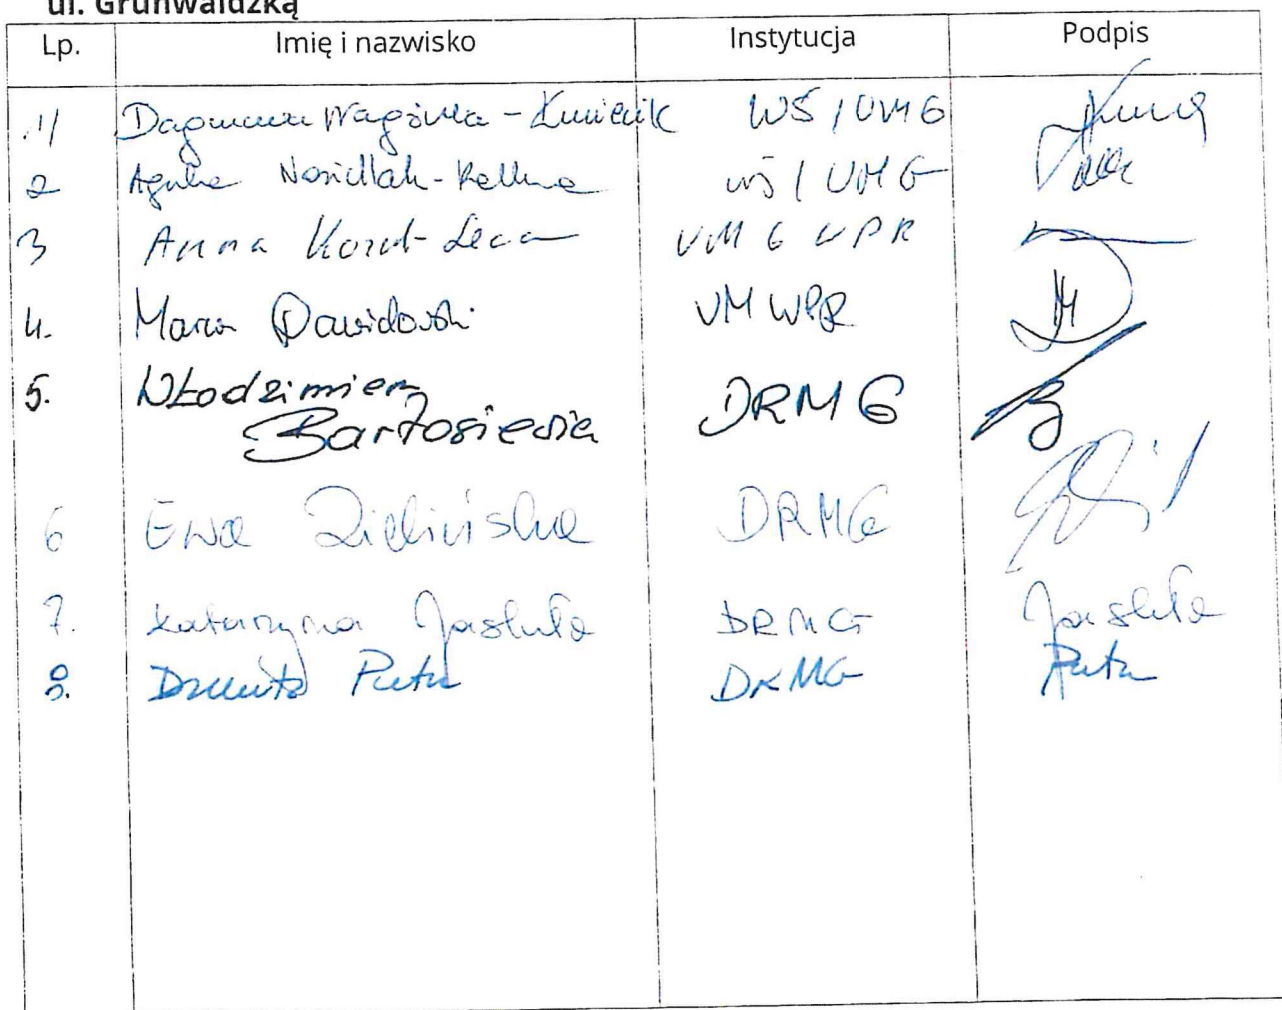 ul. Grunwaldzką
Lp. Imię i nazwisko Instytucja Podpis
1/ Dagmara Nagórka-Kmiecik WŚ/UMG
2 WŚ/UMG
3 Anna UMG WPR
4. Dawidowski UM WPR
5. Włodzimierz
Bartosiewicz DRMG
6 Ewa Zielińska DRMG
7. Katarzyna Jaskuła DRMG Jaskuła
8. Danuta Putu DRMG Putu